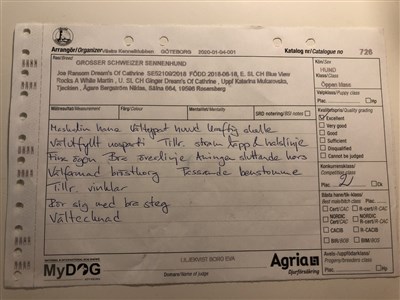 Arrangör/Organizer Västra Kennelklubben GÖTEBORG 2020-01-04-001
Katalog nr/Catalogue no 726
Ras/Breed
GROSSER SCHWEIZER SENNENHUND
Joe Ransom Dream's Of Cathrine SE52109/2018 FÖDD 2018-08-18, E. SL CH Blue View
Rocks A White Martin, U. SL CH Ginger Dream's Of Cathrine, Uppf Katerina Mutanovska,
Tjeckien, Ägare Bergström Niclas, Sätna 664, 19596 Rosersberg
Kön/Sex
HUND
Klass/Class
Öppen klass
Valpklass/Puppy class
Plac.
Hp
Mätresultat/Measurement
Färg/Colour
Mentalitet/Mentality
SRD notering/BSI noted
Kvalitet/Quality grading
Excellent
Very good
Good
Sufficient
Disqualified
Cannot be judged
Konkurrensklass
Competition class
Plac. 2 Ck
Bästa hane/tik-klass/
Best male/bitch class Plac.
Cert/CAC R-cert/R-CAC
NORDIC Cert/CAC
NORDIC R-Cert/R-CAC
CACIB R-CACIB
BIR/BOB BIM/BOS
Avels-/uppfödarklass/
Progeny/breeders class
Maskulin hane Välkroppad huvud kraftig skalle
Välutfyllt nosparti Tillr. stram läpp & halslinje
Fina ögon Bra överlinje Aningen sluttande kors
Välformad bröstkorg Passande benstomme
Tillr. vinklar
Rör sig med bra steg
Vältecknad
MyDOG
LILJEKVIST BORG EVA
Domare/Name of judge
Agria
Djurförsäkring